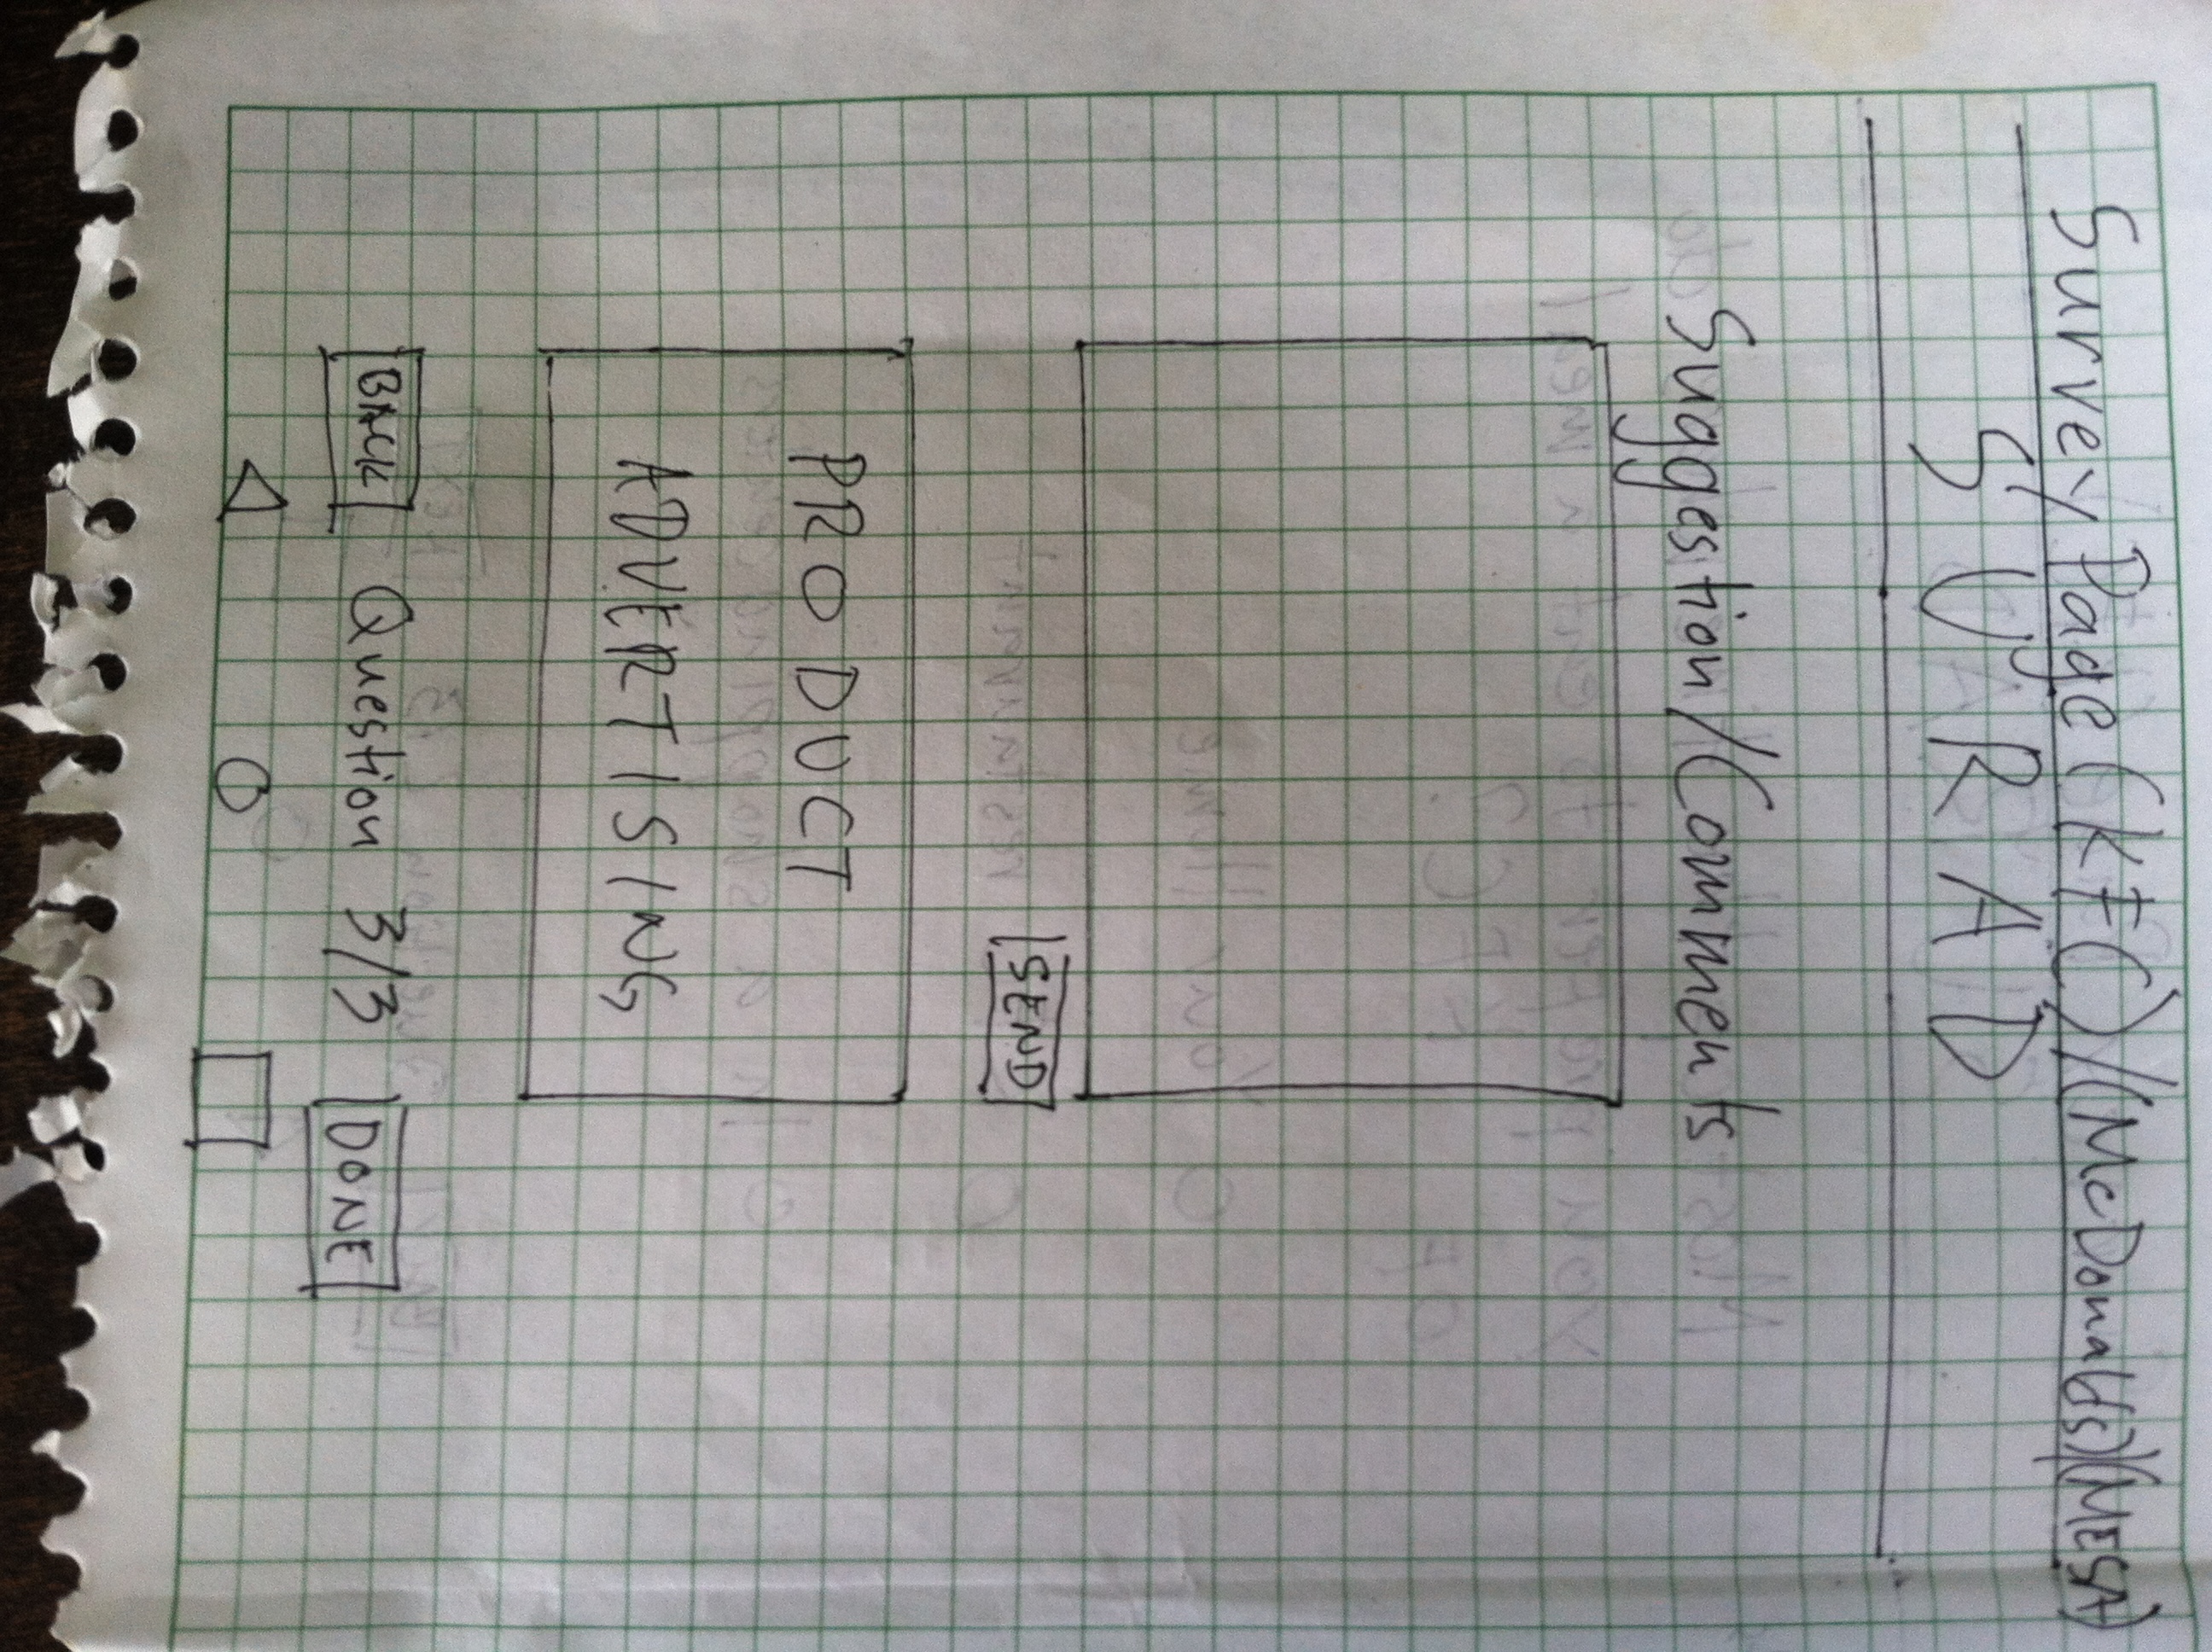 Survey Page (KFC)/(McDonalds)(MESA)
SURAD
Suggestion/Comments
SEND
PRODUCT
ADVERTISING
BACK Question 3/3 DONE